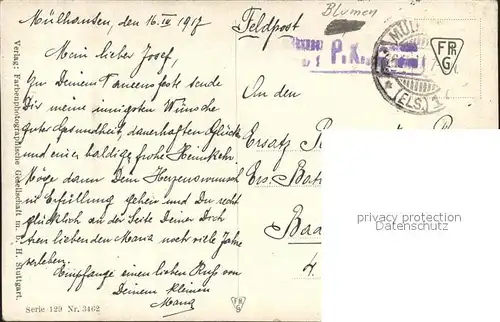 Mülhausen, den 16. III 1917
Feldpost
Blumen
Mein lieber Josef,
Zu Deinem Namensfeste sende
Dir meine innigsten Wünsche
guter Gesundheit, dauerhaften Glück
und eine baldige frohe Heimkehr.
Möge dann Dein Herzenswunsch
in Erfüllung gehen und Du recht
glücklich an der Seite Deiner Dich
liebenden Maria noch viele Jahre
verleben.
Empfange einen lieben Kuß von
Deinem kleinen
Maria
An den
Ersatz
Ers. Bat
Baa
4.
P.K.
MÜL
(ELS.) 1
FPG
privacy protection
Datenschutz
Verlag: Farbenphotographische Gesellschaft m. b. H. Stuttgart.
Serie 129 Nr. 3462